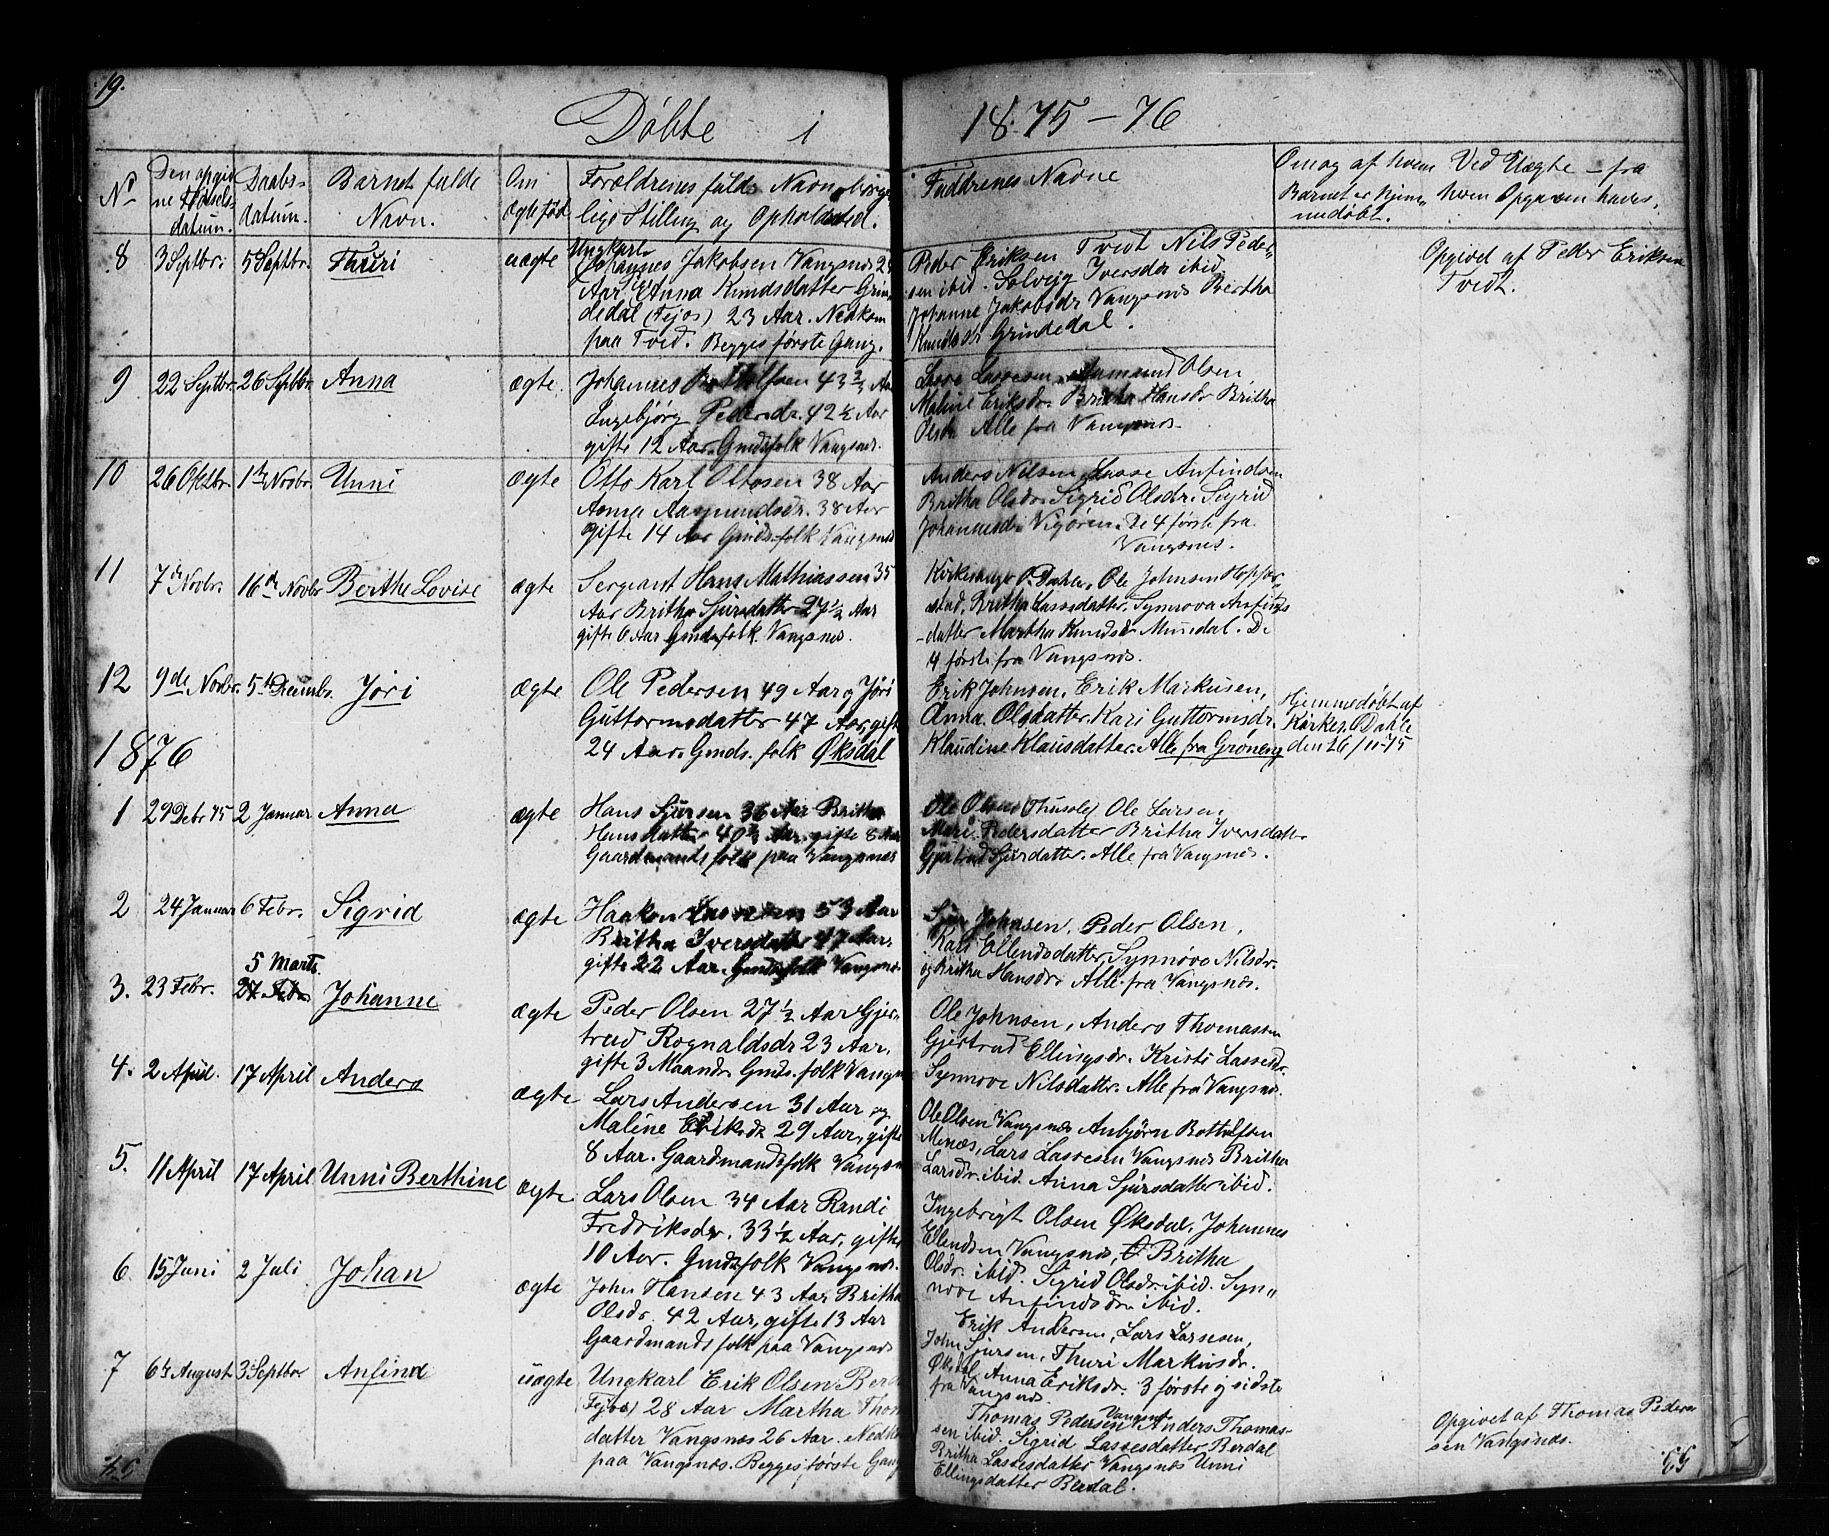 19.
Döbte i 1875-76
No
Den opgiv
ne Fødsels-
datum.
Daabs-
datum.
Barnets fulde
Navn.
Om
ægte fød
Forældrenes fulde Navn, borger
lige Stilling og Opholdssted.
Faddrenes Navne
Omog af hvem
Barnet er hjem-
medøbt.
Ved Uægte - fra
hvem Opgaven haves.
8 3 Septbr. 5 Septbr. Thuri uægte
Ungkarl
Johannes Jakobsen Vangsnæs
Aar. Anna Knudsdatter Grin
dedal (Fejos) 23 Aar. Nedkom
paa Tved. Begges første Gang.
Peder Eriksen Tvedt Nils Peder-
sen ibid. Solveig Iversdr ibid
Johanne Jakobsdr Vangsnæs Bertha
Knudsdr Grindedal.
Opgivet af Peder Eriksen
Tvedt.
9 22 Septbr. 26 Septbr. Anna ægte.
Johannes Botolfsen 43 ½ Aar
Ingebjørg Pedersdr. 42 ½ Aar
gifte 12 Aar. Gmdsfolk Vangsnæs.
Lasse Lassesen, Aamund Olsen
Maline Eriksdr. Britha Hansdr Britha
Olsdr Alle fra Vangsnæs.
10 26 Oktbr. 1ste Novbr. Unni ægte
Otto Karl Ottosen 38 Aar
Anna Aamundsdr. 38 Aar
gifte 14 Aar Gmds.folk Vangsnæs
Anders Nilsen, Lasse Anfindsen
Britha Olsdr. Sigrid Olsdr. Sigrid
Johannesdr Vigören. De 4 förste fra
Vangsnes.
11 7de Novbr. 16de Novbr Berthe Lovise ægte
Sergeant Hans Mathiassen 35
Aar Britha Sjursdatter 27 ½ Aar
gifte 6 Aar Gmdsfolk Vangsnæs.
Kirkesanger O. Dahle, Ole Johnsen Hopper-
stad, Britha Lassesdatter. Synnøva Anfinds
-datter Martha Knudsdr Mundal. De
4 første fra Vangsnæs.
12 9de Novbr. 5te Decembr. Jöri ægte
Ole Pedersen 49 Aar og Jöri
Guttormsdatter 47 Aar, gifte
24 Aar. Gmds. folk Øksdal
Erik Johnsen, Erik Markusen,
Anna Olsdatter Kari Guttormsdr.
Klaudine Klausdatter. Alle fra Grøneng
Hjemmedøbt af
Kirkes. O Dahle
den 26/11-75
1876
1 29 Debr 75 2 Januar Anna ægte
Hans Sjursen 36 Aar Britha
Hansdatter 40 ½ Aar. gifte 8 Aar
Gaardmandsfolk paa Vangsnæs
Ole Olsen Ole Larsen
Mari Pedersdatter Britha Iversdatter
Gjertrud Sjursdatter. Alle fra Vangsnæs.
2 24 Januar 6 Febr. Sigrid ægte
Haakon Lassesen 53 Aar
Britha Iversdatter 47 Aar,
gifte 22 Aar. Gmdsfolk Vangsnæs
Sjur Johnsen, Peder Olsen,
Kari Ellendsdatter, Synnøve Nilsdr.
og Britha Hansdr. Alle fra Vangsnæs.
5 Marts.
3. 23 Febr. 27 Febr Johanne ægte
Peder Olsen 27 ½ Aar Gjer-
trud Rognaldsdr 23 Aar,
gifte 3 Maander Gmds. folk Vangsnæs
Ole Johnsen, Anders Thomassen
Gjertrud Ellingsdr. Kristi Lassesdr.
Synnove Nilsdatter. Alle fra Vangsnæs.
4. 2 April. 17 April Anders ægte
Lars Andersen 31 Aar og
Maline Eriksdr 29 Aar, gifte
8 Aar. Gaardmandsfolk Vangsnæs
Ole Olsen Vangsnæs Anbjörn Bottolfsen
Menæs, Lars Lassesen Vangsnæs Britha
Larsdr. ibid. Anna Sjursdatter ibid.
5. 11 April 17 April Unni Berthine ægte
Lars Olsen 34 Aar Randi
Fredriksdr. 33 ½ Aar, gifte
10 Aar. Gmdsfolk Vangsnæs.
Ingebrigt Olsen Øksdal, Johannes
Ellendsen Vangsnæs, Britha
Olsdr. ibid. Sigrid Olsdr. ibid. Syn-
nøve Anfindsdr. ibid.
6. 15 Juni 2 Juli Johan ægte
John Hansen 43 Aar Britha
Olsdr. 42 Aar, gifte 13 Aar
Gaardmandsfolk paa Vangsnæs
Erik Andersen, Lars Larsesen,
John Sjursen, Thuri Markusdr.
Øksdal Anna Eriksdr. 3 første og sidste
fra Vangsnæs
7 6te August 3 Septbr Anfind uægte
Ungkarl Erik Olsen Berdal
Fejos) 28 Aar Martha Thomas
datter Vangsnæs 26 Aar. Nedkom
paa Vangsnæs. Begges første Gang
Thomas Pedersen Vangsnæs Anders Thomas-
sen ibid. Sigrid Lassesdatter Berdal
Britha Lassesdatter Vangsnæs Unni
Ellingsdatter Berdal.
Opgivet af Thomas Peder
sen Vangsnæs.